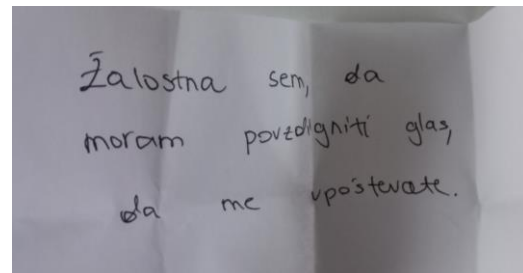 Žalostna sem, da
moram povzdigniti glas,
da me upoštevate.